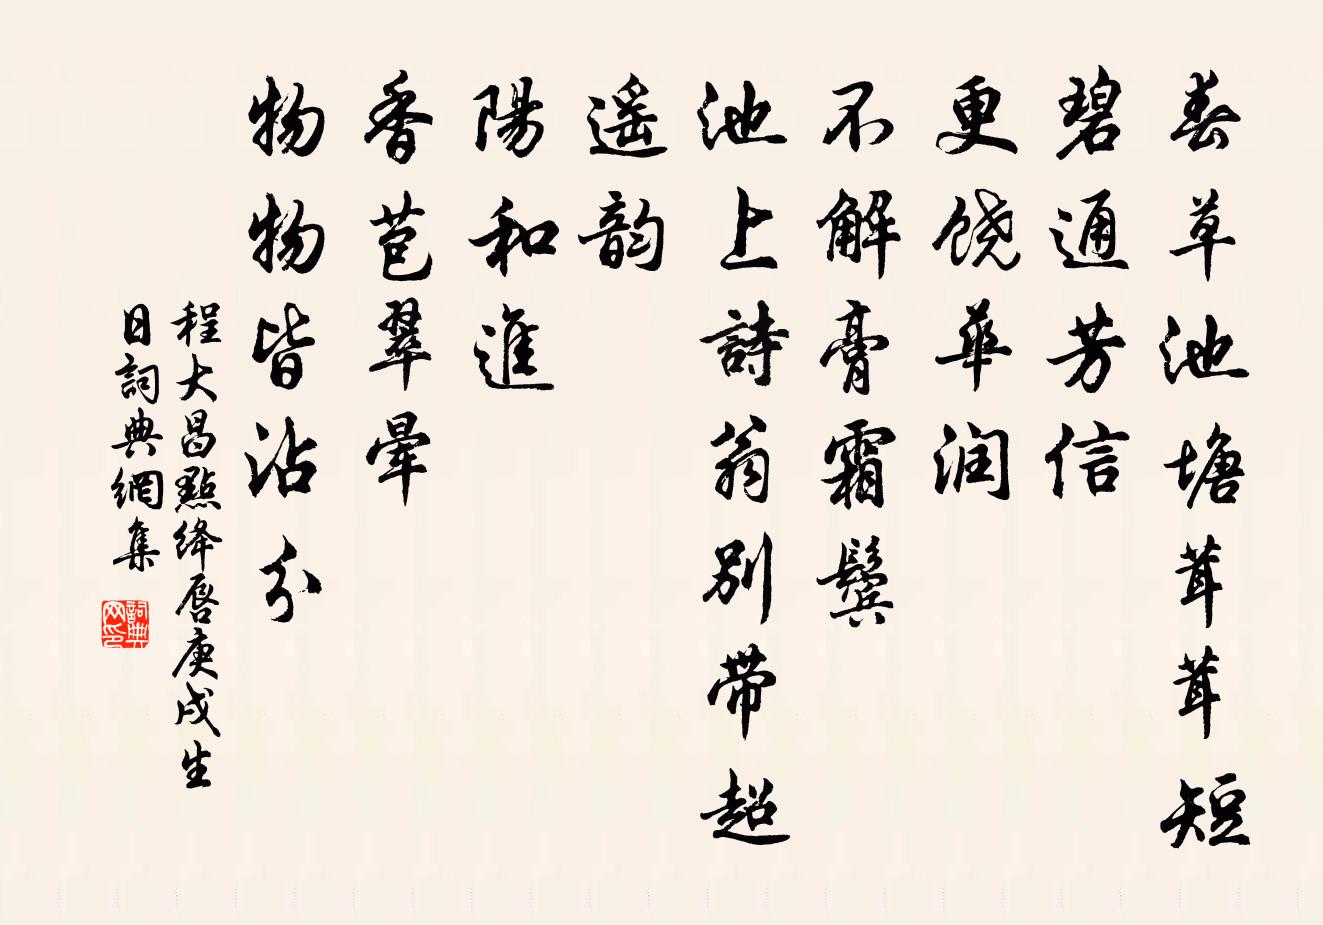 春草池塘茸茸短
碧通芳信
更饶華润
不解膏霜鬓
池上詩翁別帶超
遥韵
陽和進
香苞翠暈
物物皆沾分
程大昌點绛唇庚戌生
日詞典網集
詞典
网印